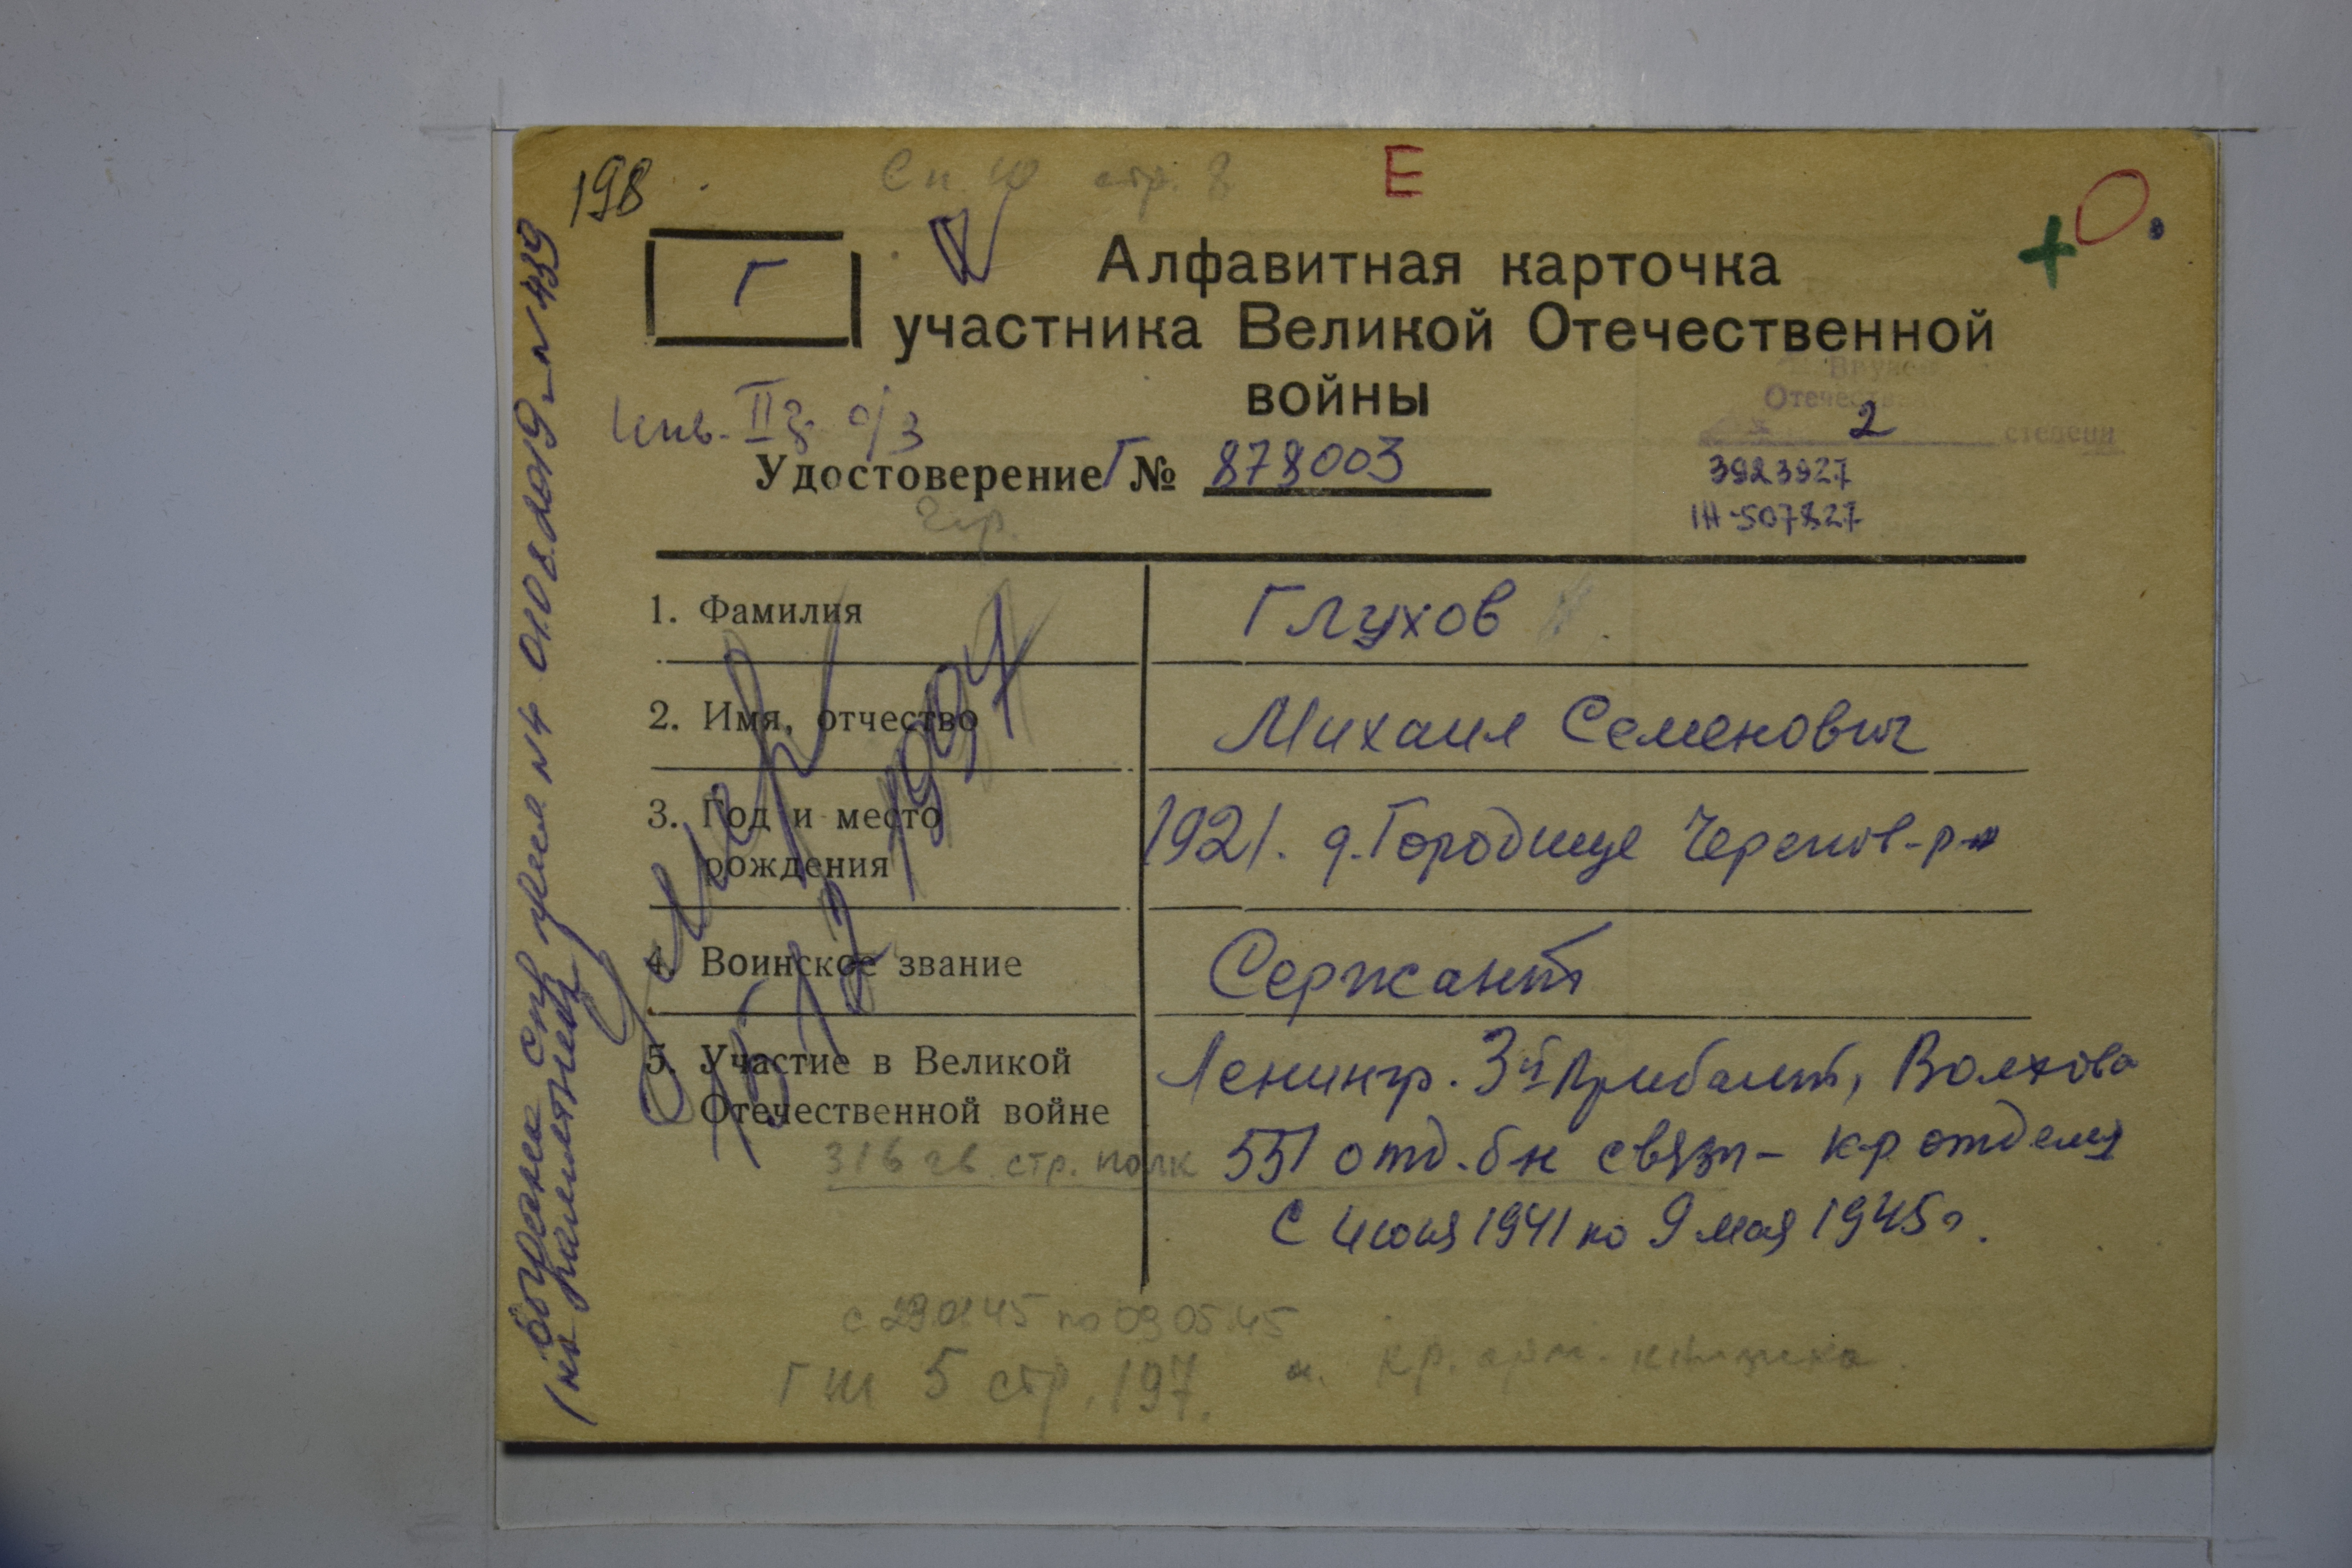 198
Сп. 10 стр. 8
Е
Г
Алфавитная карточка
участника Великой Отечественной
войны
+ О.
Инв. II г. о/з
Удостоверение Г № 878003
Вруче
Отечес
2 степени
3923927
IH-507827
1. Фамилия
Глухов
2. Имя, отчество
Михаил Семенович
3. Год и место
рождения
1921. д. Городище Черепов-р-н
4. Воинское звание
Сержант
5. Участие в Великой
Отечественной войне
Ленингр. 3й Прибалт, Волхова
316 гв. стр. полк 551 отд. бн связи - к-р отделя
с июля 1941 по 9 мая 1945 г.
умер
15 12 1997
с 29.01.45 по 09.05.45
ГШ 5 стр. 197.
кр. арм. книжка
Выдана спр
N4 01.08.2019 N439
на памятник